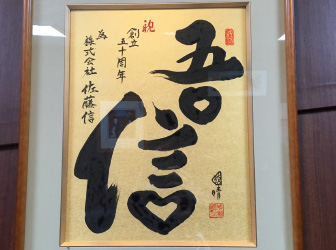 祝
創立
五十周年
為
株式会社 佐藤信
吾
信